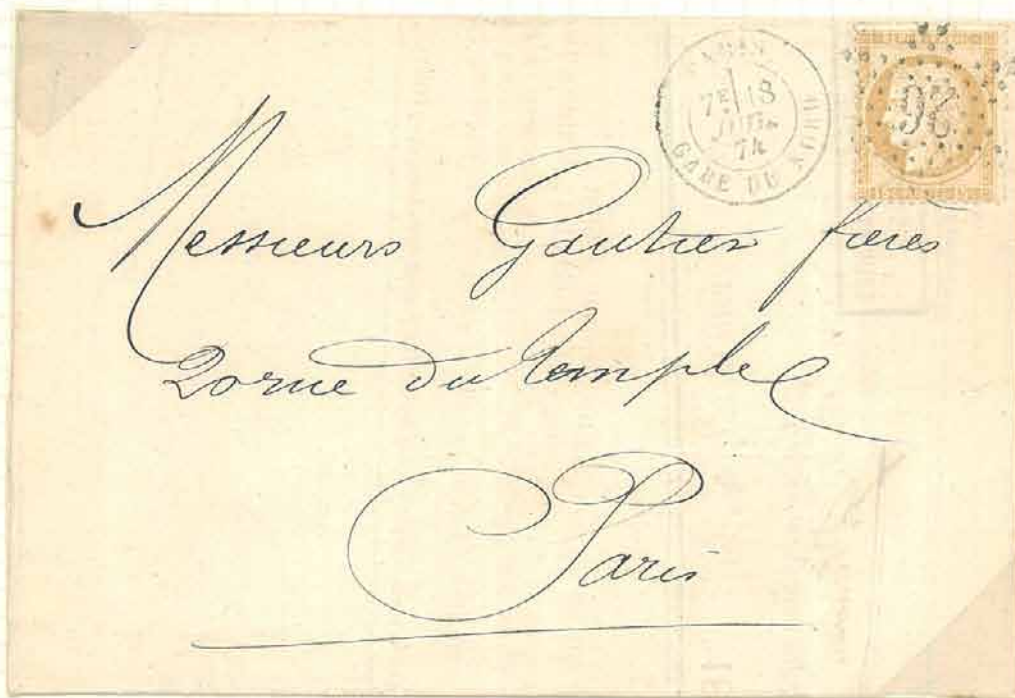 PARIS
7E 18
JUIL
74
GARE DU NORD
26
Messieurs Gautier frères
20 rue du Temple
Paris